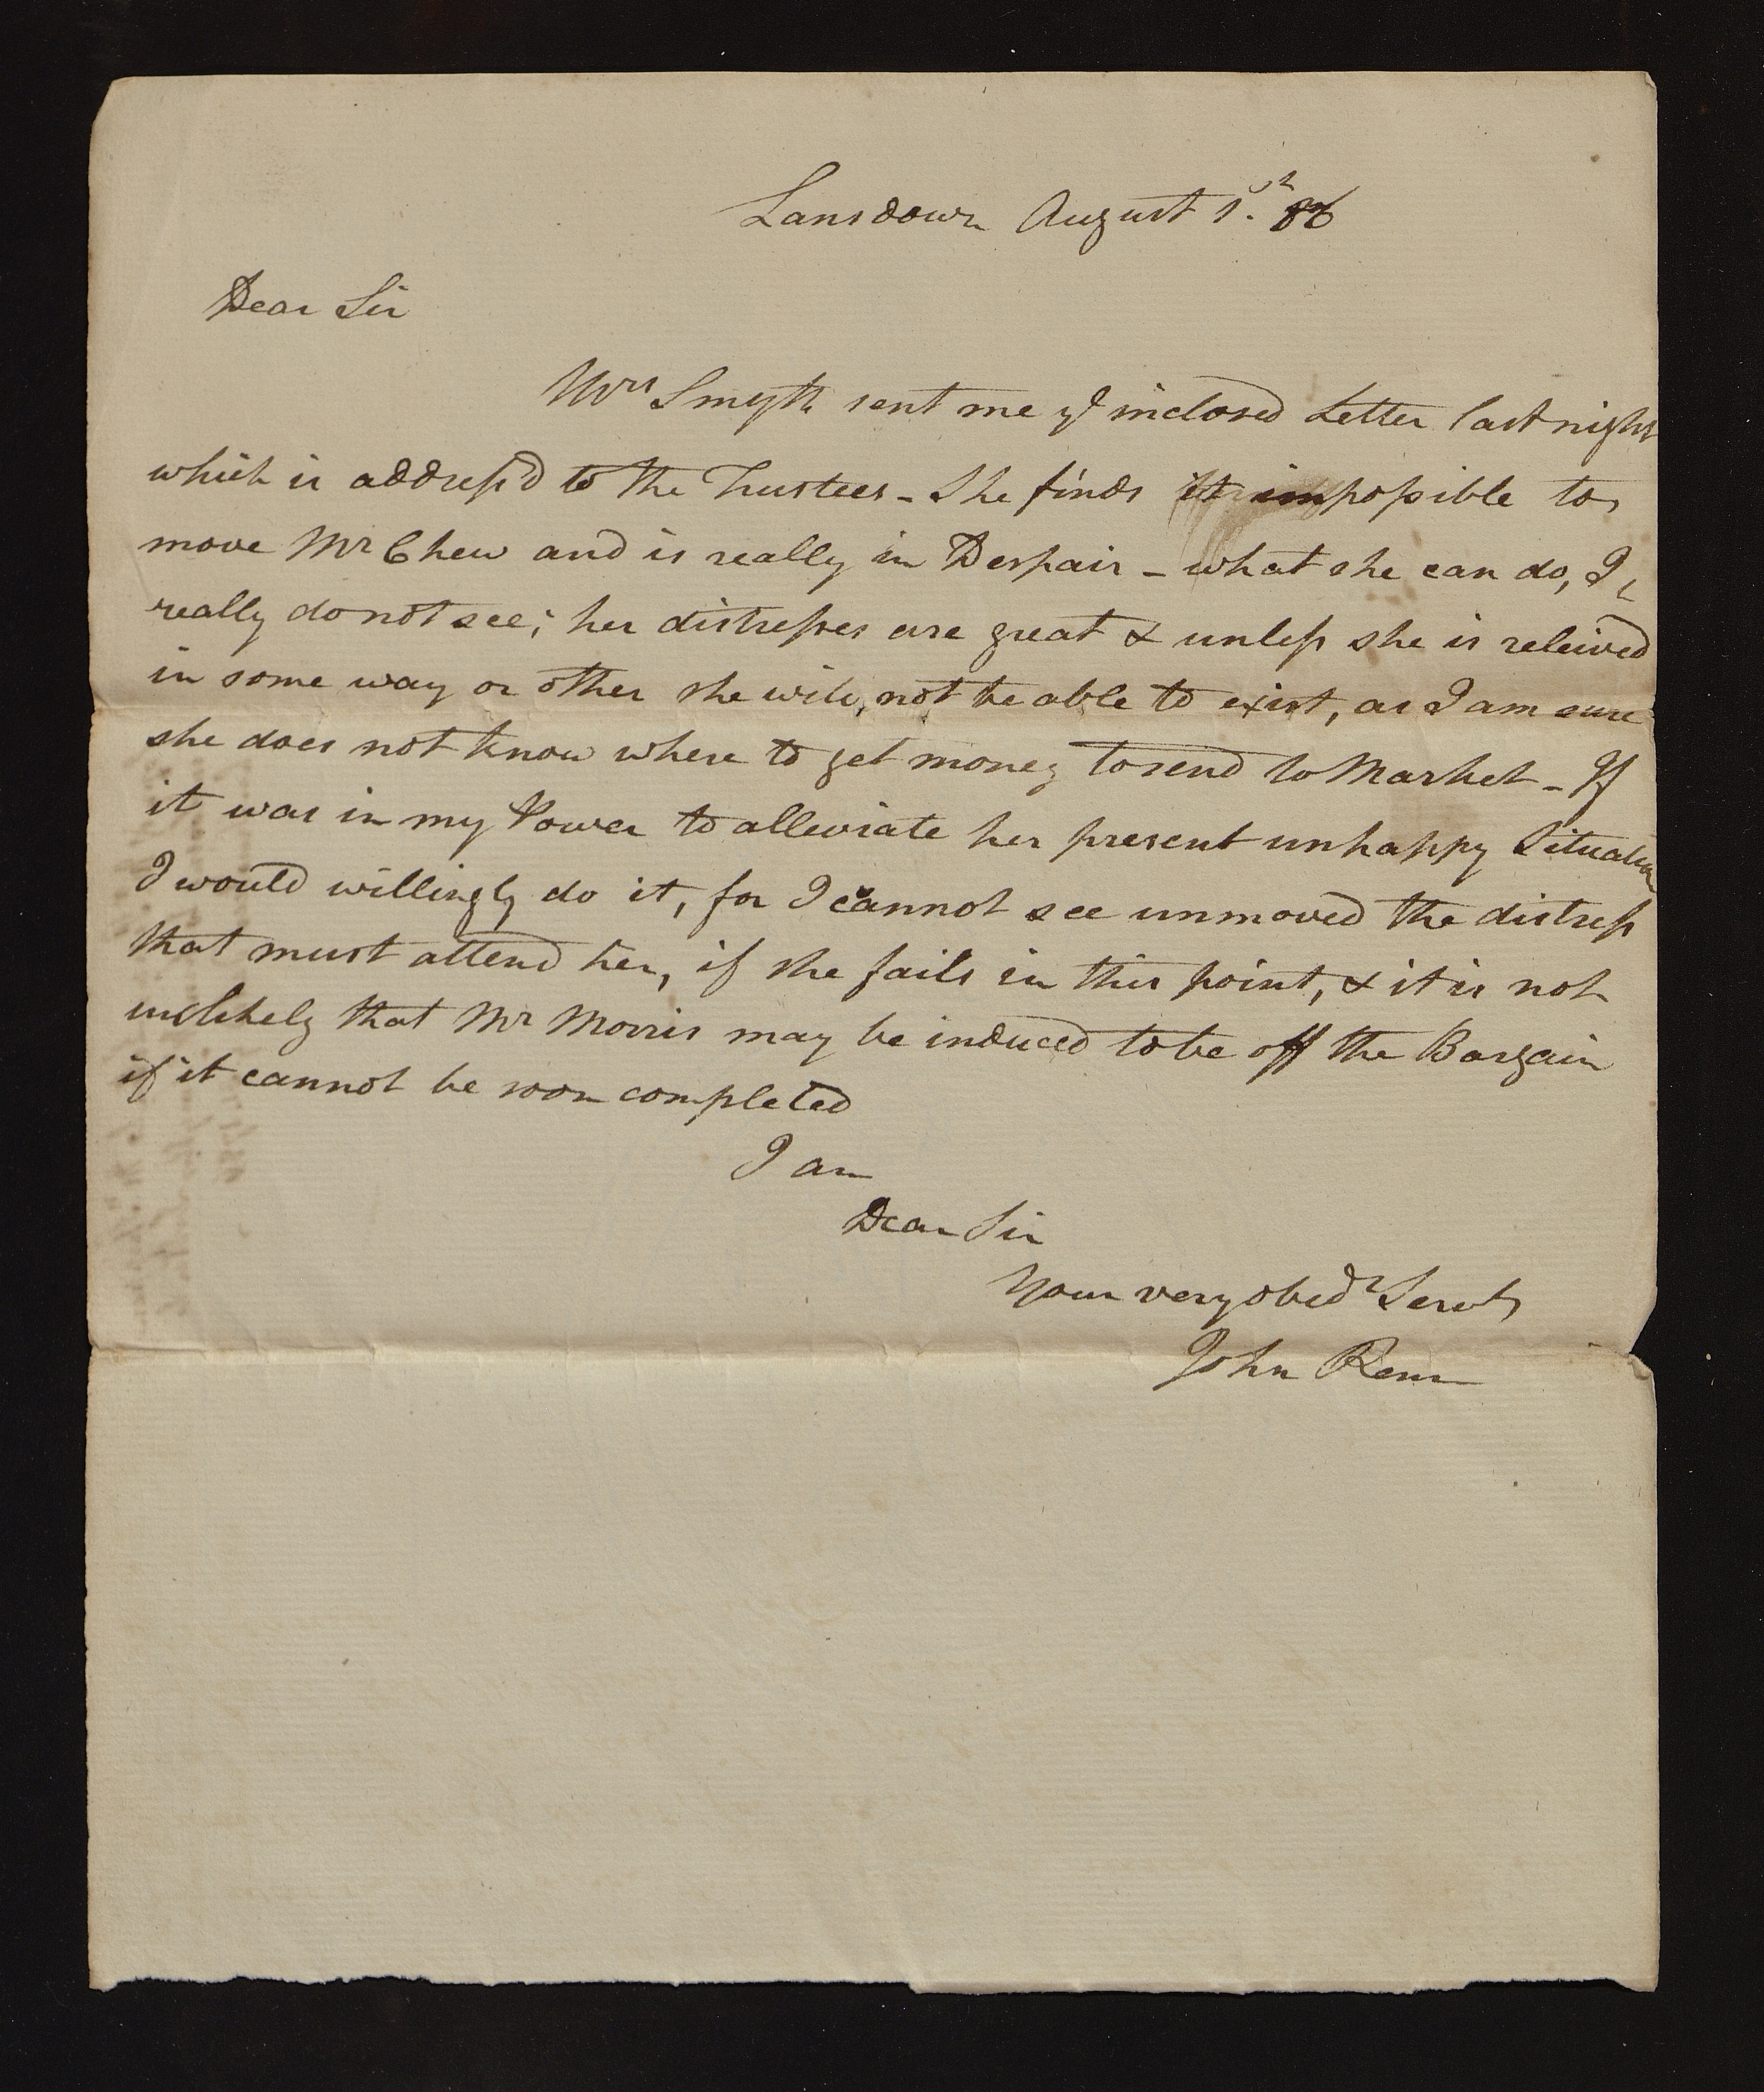 Lansdown August 1st. 86
Dear Sir
Mrs Smyth sent me ye inclosed Letter last night
which is address'd to the Trustees - She finds it impossible to
move Mr Chew and is really in Despair - what she can do, I
really do not see; her distresses are great & unless she is releived
in some way or other she will not be able to exist, as I am sure
she does not know where to get money to send to Market - If
it was in my Power to alleviate her present unhappy Situation
I would willingly do it, for I cannot see unmoved the distress
that must attend her, if she fails in this point, & it is not
unlikely that Mr Morris may be induced to be off the Bargain
if it cannot be soon completed
I am
Dear Sir
Your very obedt Servt
John Penn